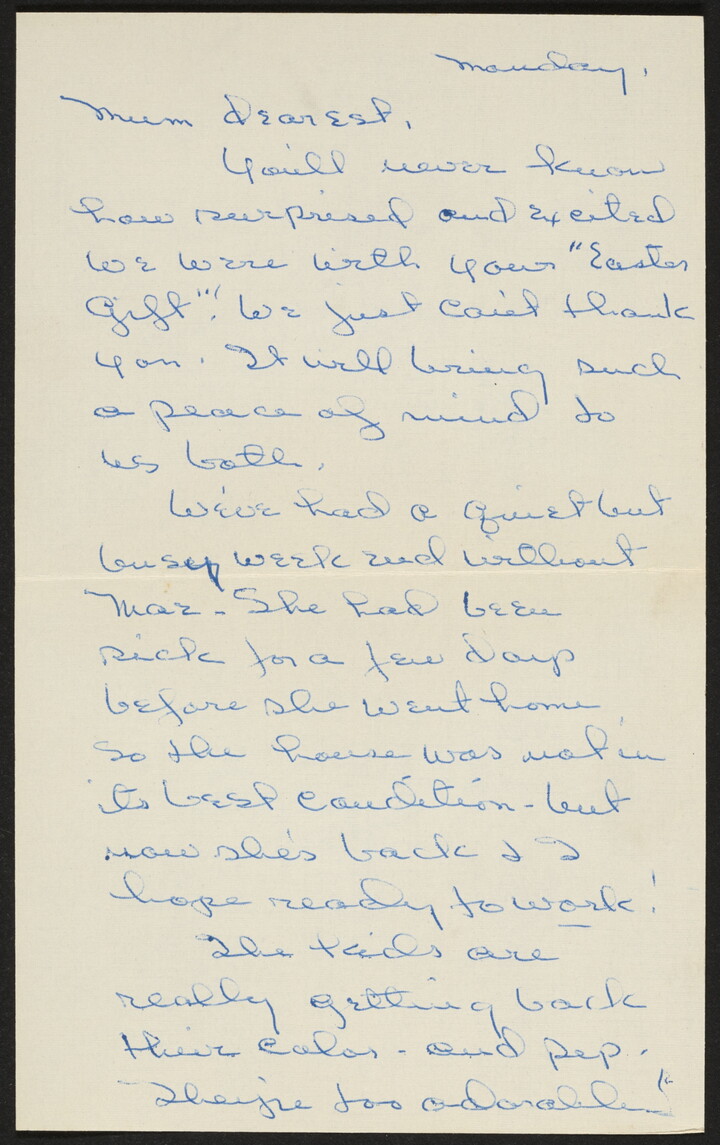 Monday.
Mum dearest,
You'll never know
how surprised and excited
we were with your "Easter
Gift"! We just can't thank
you. It will bring such
a peace of mind to
us both.
We've had a quiet but
busy week end without
Mae - She had been
sick for a few days
before she went home
so the house was not in
its best condition - but
now she's back & I
hope ready to work!
The kids are
really getting back
their color - and pep.
They're too adorable